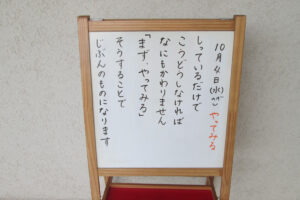 10月4日(水) やってみる
しっているだけで
こうどうしなければ
なにもかわりません
「まず、やってみる」
そうすることで
じぶんのものになります